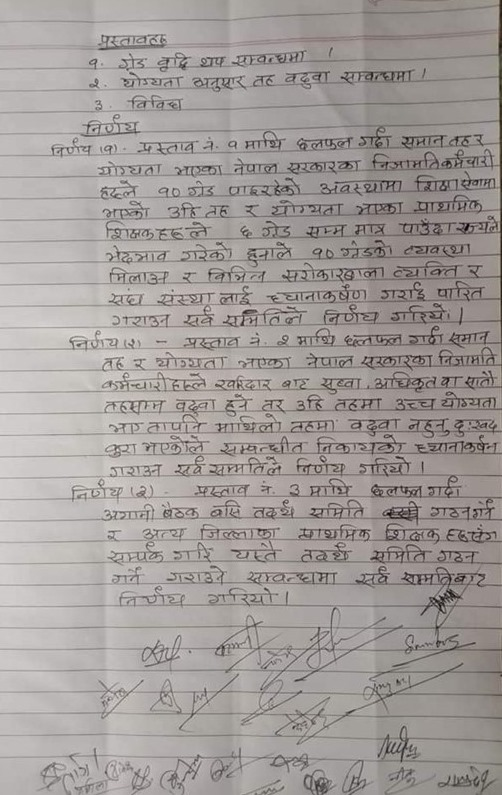 प्रस्तावहरु
१. ग्रेड वृद्धि थप सम्वन्धमा ।
२. योग्यता अनुसार तह वढुवा सम्वन्धमा ।
३. विविध
निर्णय
निर्णय (१)- प्रस्ताव नं. १ माथि छलफल गर्दा समान तह र
योग्यता भएका नेपाल सरकारका निजामति कर्मचारी
हरुले १० ग्रेड पाइरहेको अवस्थामा शिक्षा सेवामा
भएको उहि तह र योग्यता भएका प्राथमिक
शिक्षकहरुले ६ ग्रेड सम्म मात्र पाउँदा राज्यले
भेदभाव गरेको हुनाले १० ग्रेडको व्यवस्था
मिलाउन र विभिन्न सरोकारवाला व्यक्ति र
संघ संस्था लाई ध्यानाकर्षण गराई पारित
गराउन सर्व सम्मतिले निर्णय गरियो ।
निर्णय (२) - प्रस्ताव नं. २ माथि छलफल गर्दा समान
तह र योग्यता भएका नेपाल सरकारका निजामति
कर्मचारीहरुले खरिदार बाट सुव्वा, अधिकृत वा सातौ
तहसम्म वढुवा हुने तर उहि तहमा उच्च योग्यता
भए तापनि माथिलो तहमा वढुवा नहुनु दुःखद
कुरा भएकोले सम्वन्धीत निकायको ध्यानाकर्षन
गराउन सर्व सम्मतिले निर्णय गरियो ।
निर्णय (३) - प्रस्ताव नं. ३ माथि छलफल गर्दा
अगामी बैठक बसि तदर्थ समिति गठन गर्ने
र अन्य जिल्लाका प्राथमिक शिक्षक हरुसंग
सम्पर्क गरि यस्तै तदर्थ समिति गठन
गर्ने गराउने सम्वन्धमा सर्व सम्मतिबाट
निर्णय गरियो ।